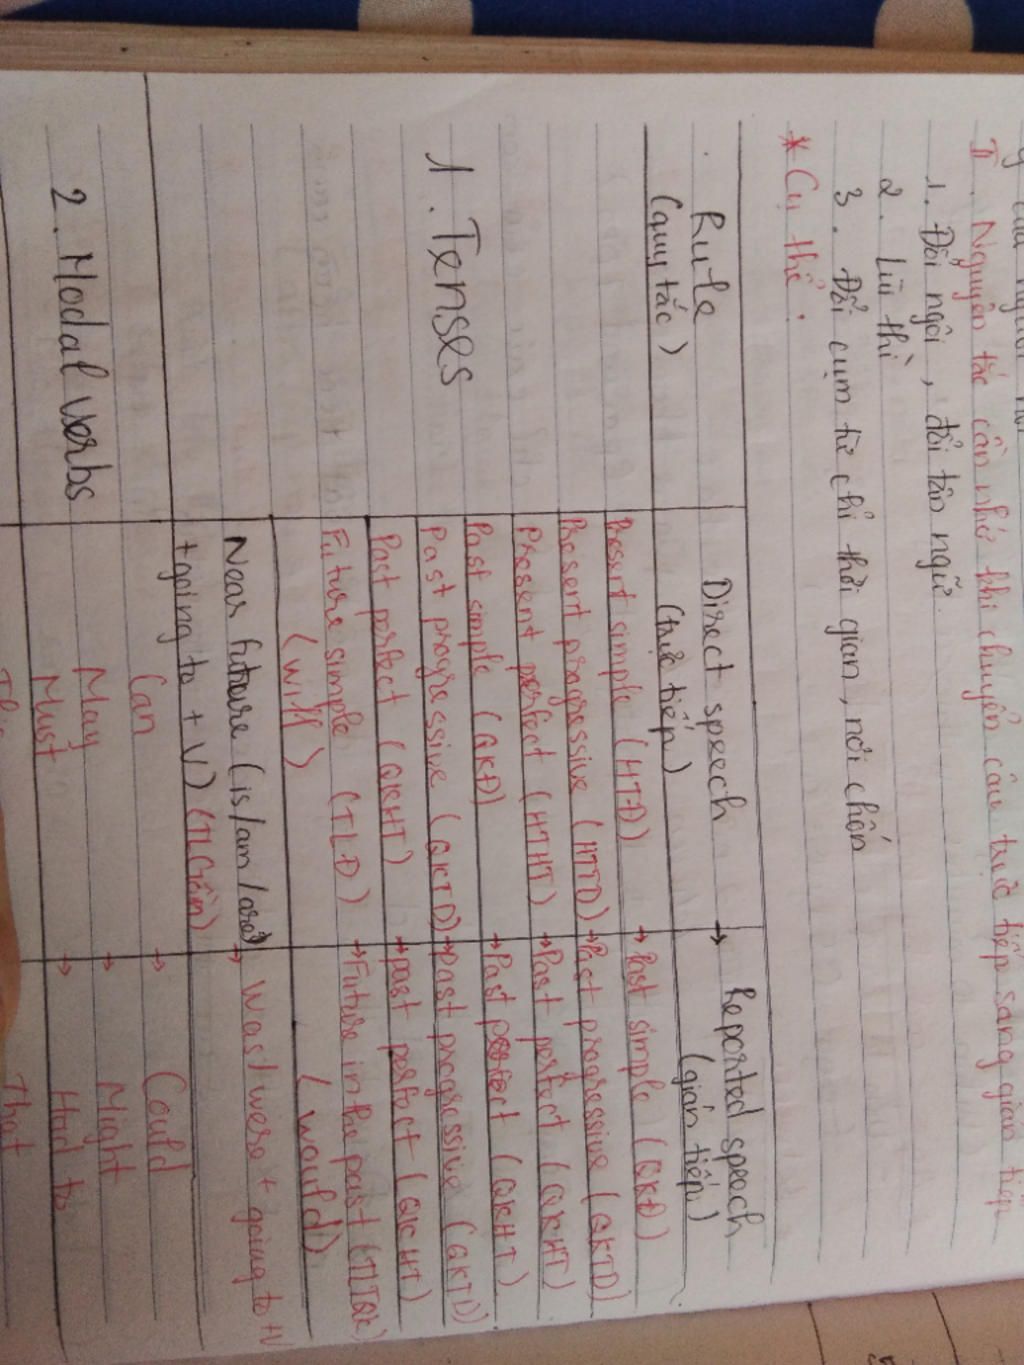 II. Nguyên tắc cần nhớ khi chuyển câu trực tiếp sang gián tiếp
1. Đổi ngôi, đổi tân ngữ.
2. Lùi thì
3. Đổi cụm từ chỉ thời gian, nơi chốn
* Cụ thể.
Rule Direct speech → Reported speech
(quy tắc) (trực tiếp) (gián tiếp)
1. Tenses
Present simple (HTĐ) → Past simple (QKĐ)
Present progressive (HTTD) → Past progressive (QKTD)
Present perfect (HTHT) → Past perfect (QKHT)
Past simple (QKĐ) → Past perfect (QKHT)
Past progressive (QKTD) → past progressive (QKTD)
Past perfect (QKHT) → past perfect (QKHT)
Future simple (TLĐ) → Future in the past (TLTQK)
(will) (would)
Near future (is/am/are) → Was/were + going to + V
+ going to + V) (TLGần)
2. Modal verbs
Can → Could
May → Might
Must → Had to
That